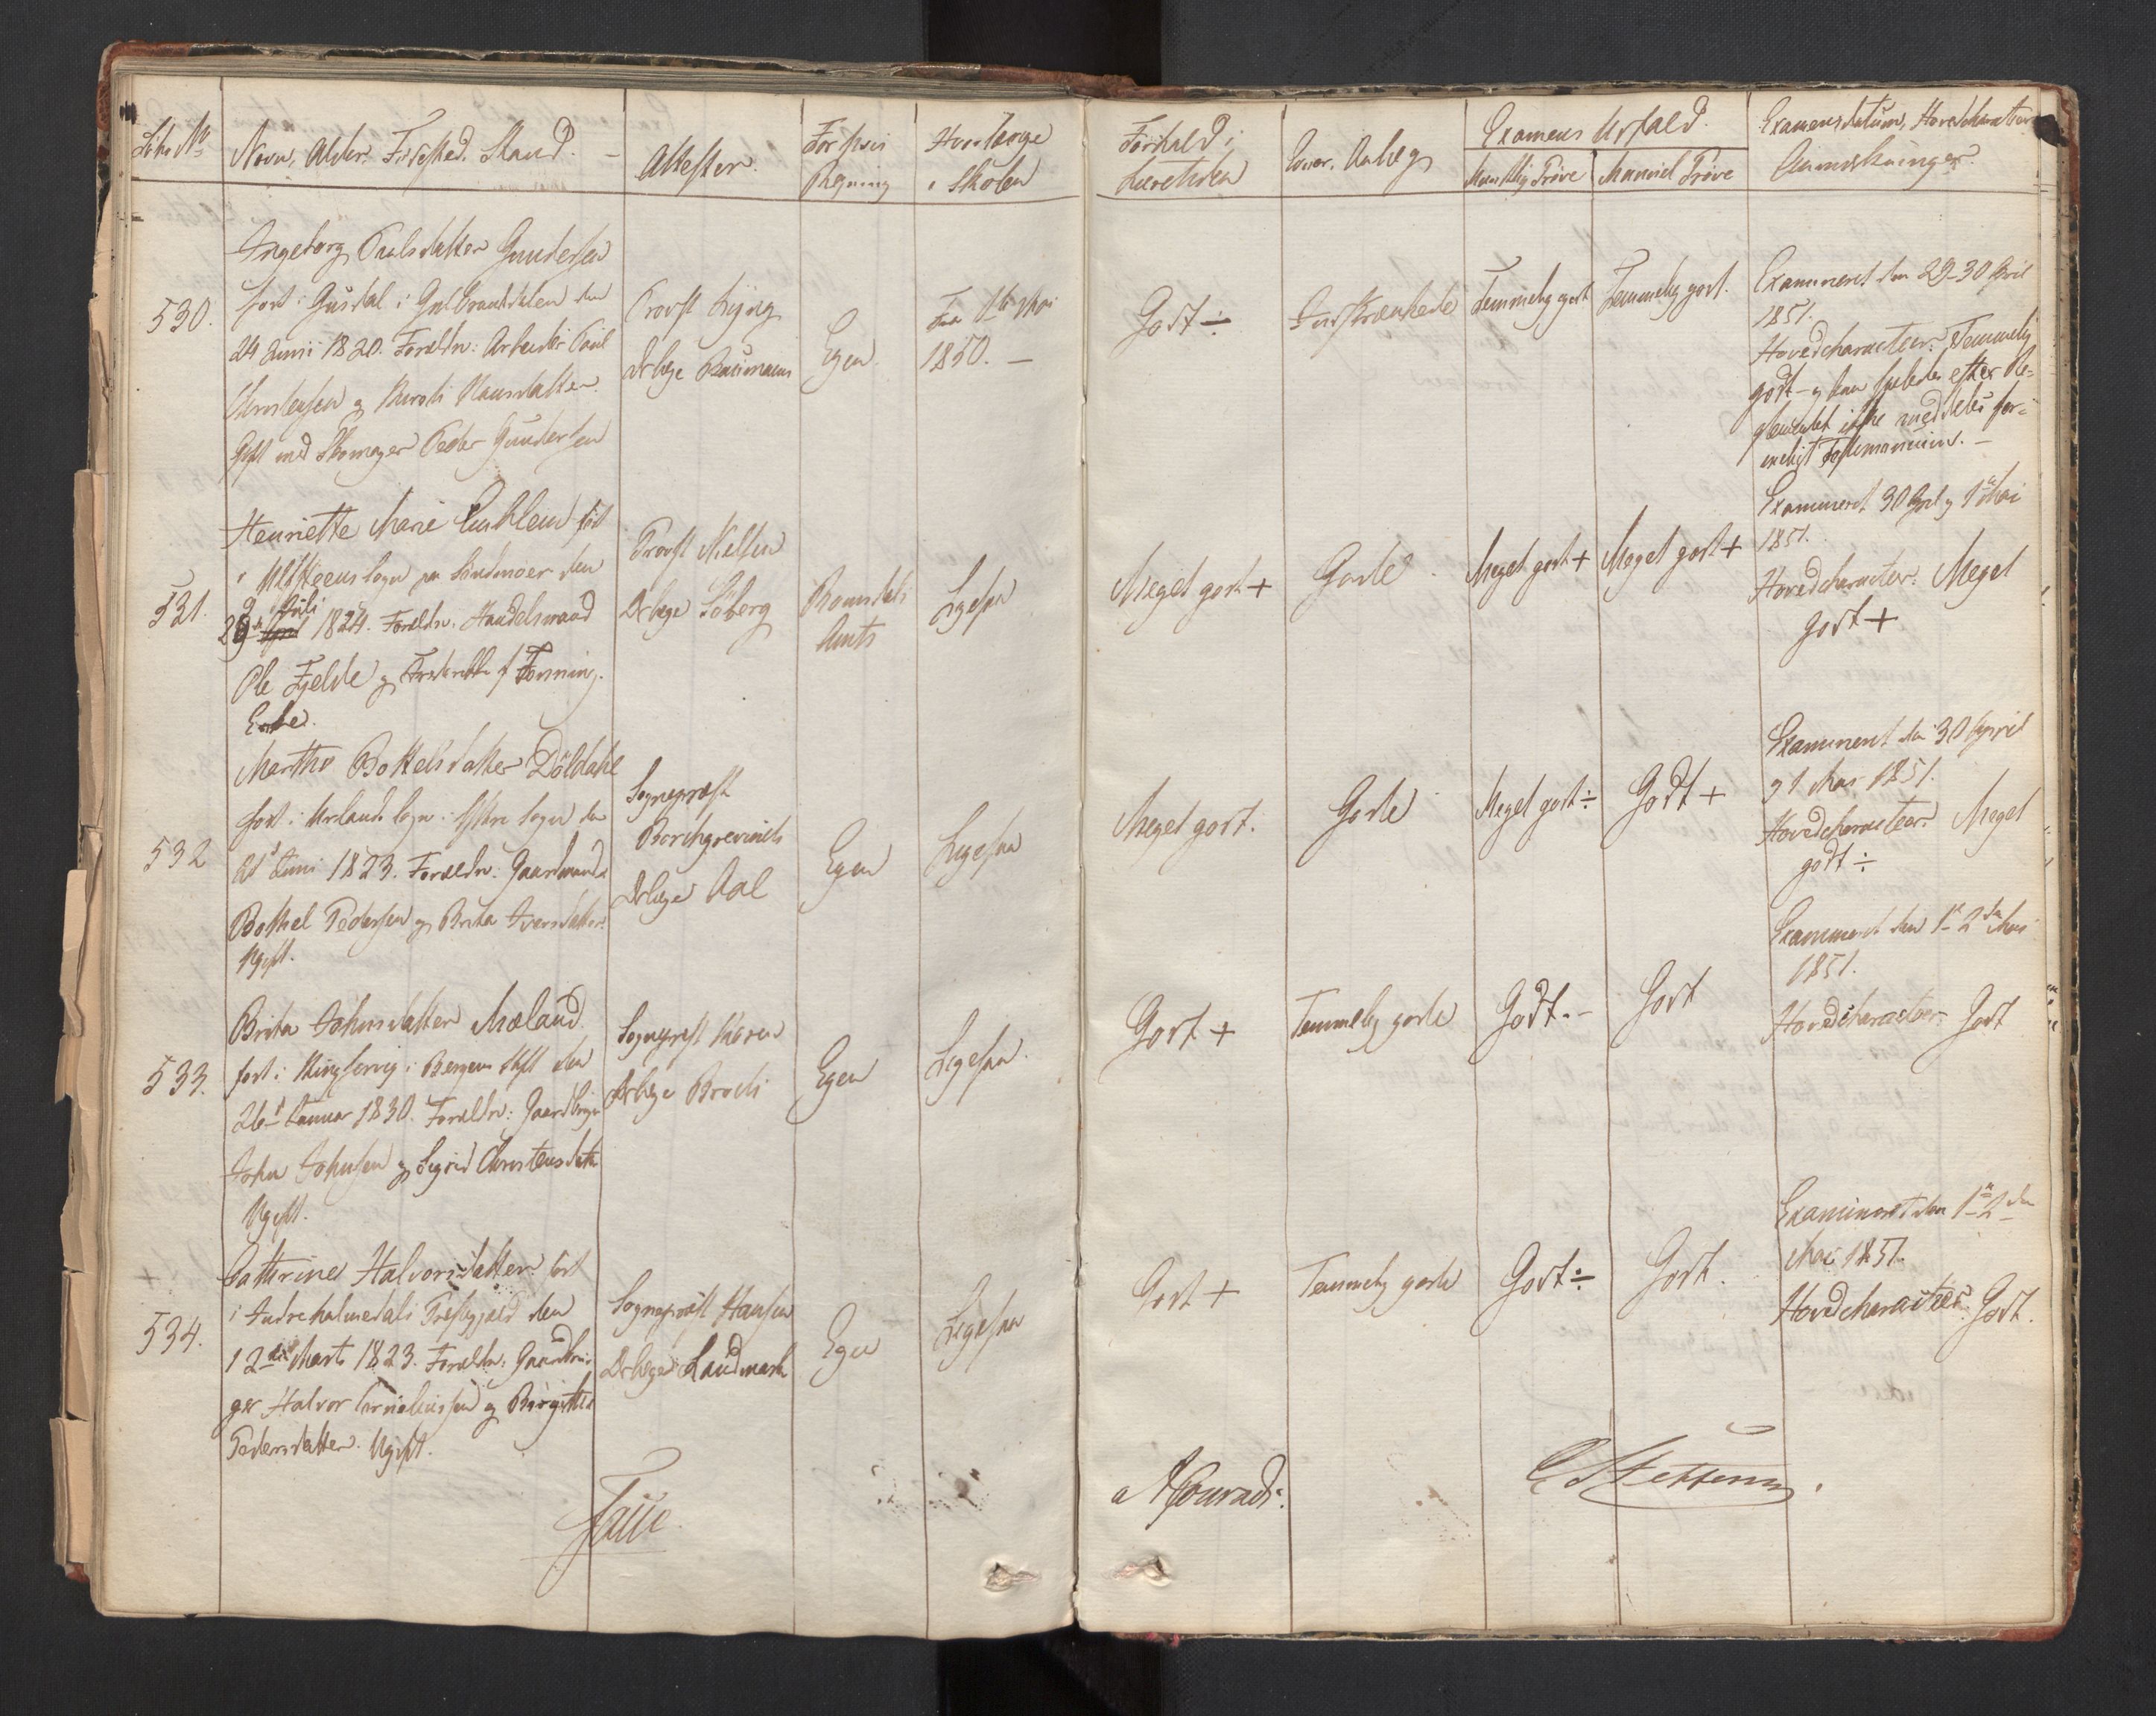 Löbe No
Navn, Alder, Fødested, Stand.
Attester.
For hvis
Regning
Hvorlænge
i Skolen
Forhold i
Læretiden
Anlæg
Examens Udfald.
Mundtlig Prøve
Manuel Prøve
Examensdatum, Hovedcharacteer
Anmærkninger.
530.
Ingeborg Paulsdatter Gundersen
født i Gusdal i Gulbrandsdalen den
24 Junii 1820. Forældre: Arbeider Paul
Christensen og Hansdatter.
Gift med Skomager Peder Gundersen
Provst
Drlæge
Egen.
Fra 16 Mai
1850. —
Godt ÷
Indskrænkede
Temmelig godt
Temmelig godt.
Examineret den 29-30 April
1851.
Hovedcharacteer: Temmelig
godt — og kan saaledes efter Re-
glementet ikke meddeles for-
Testimonium. —
531.
Henriette Marie Emblem født
i Ulfsteens Sogn paa Söndmoer den
29de Juli 1824. Forældre: Handelsmand
Ole Fjelde og f Tonning.
Enke.
Provst Nielsen
Drlæge Söberg
Romsdals
Amts
Ligesaa
Meget godt +
Gode
Meget godt +
Meget godt +
Examineret 30 April og 1ste Mai
1851.
Hovedcharacteer: Meget
godt +
532
Martha Bottelsdatter Döldahl
født i Urlands Sogn i Ytre Sogn den
21 Juni 1823. Forældre: Gaardmand
Bottel Pedersen og Brita Iversdatter.
Ugift.
Sognepræst
Borchgrevink
Drlæge Aal
Egen
Ligesaa
Meget godt.
Gode
Meget godt ÷
Godt +
Examineret den 30 April
og 1 Mai 1851.
Hovedcharacteer: Meget
godt ÷
533.
Brita Johnsdatter Mæland
født i Kingservig i Bergens Stift den
26de Januar 1830. Forældre: Gaardbruger
John Johnsen og Sigrid Christensdatter
Ugift.
Sognepræst Koren
Drlæge Broch
Egen
Ligesaa.
Godt +
Temmelig gode
Godt. –
Godt
Examineret den 1 – 2den Mai
1851.
Hovedcharacteer: Godt
534.
Cathrine Halvorsdatter født
i Indreholmedals Præstegjæld den
12te Marts 1823. Forældre: Gaardbru-
ger Halvor Corneliussen og Birgitte
Pedersdatter. Ugift.
Sognepræst Hansen
Drlæge Landmark
Egen
Ligesaa
Godt +
Temmelig gode
Godt ÷
Godt.
Examineret den 1 – 2den
Mai 1851.
Hovedcharacteer: Godt.
Faye
A Conradi.